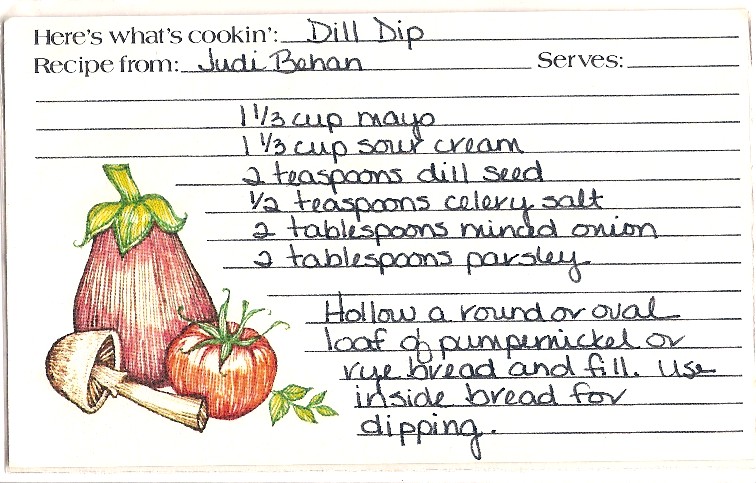 Here's what's cookin': Dill Dip
Recipe from: Judi Behan Serves:
1 1/3 cup mayo
1 1/3 cup sour cream
2 teaspoons dill seed
1/2 teaspoons celery salt
2 tablespoons minced onion
2 tablespoons parsley
Hollow a round or oval
loaf of pumpernickel or
rye bread and fill. Use
inside bread for
dipping.